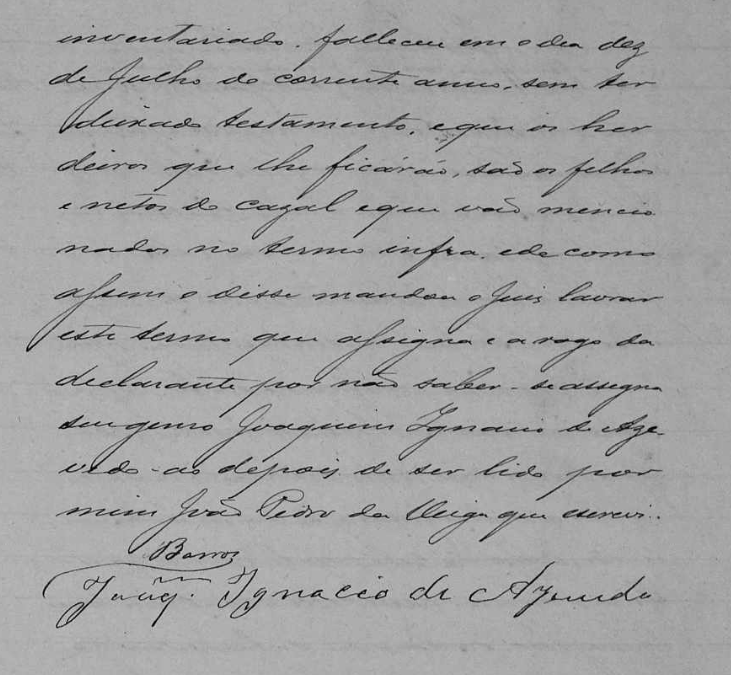 inventariado. falleceu em o dia dez
de Julho do corrente anno, sem ter
deixado testamento, e que os her
deiros que lhe ficárão, são os filhos
e netos do cazal e que vão mencio
nados no termo infra. e de como
assim o disse mandou o Juis lavrar
este termo que assigna e a rogo da
declarante por não saber - se assigna
seu genro Joaquim Ignacio de Aze-
vedo - ao depois de ser lido por
mim João Pedro da Veiga que escrevi..
Barros
Joaq.m Ignacio de Azevedo